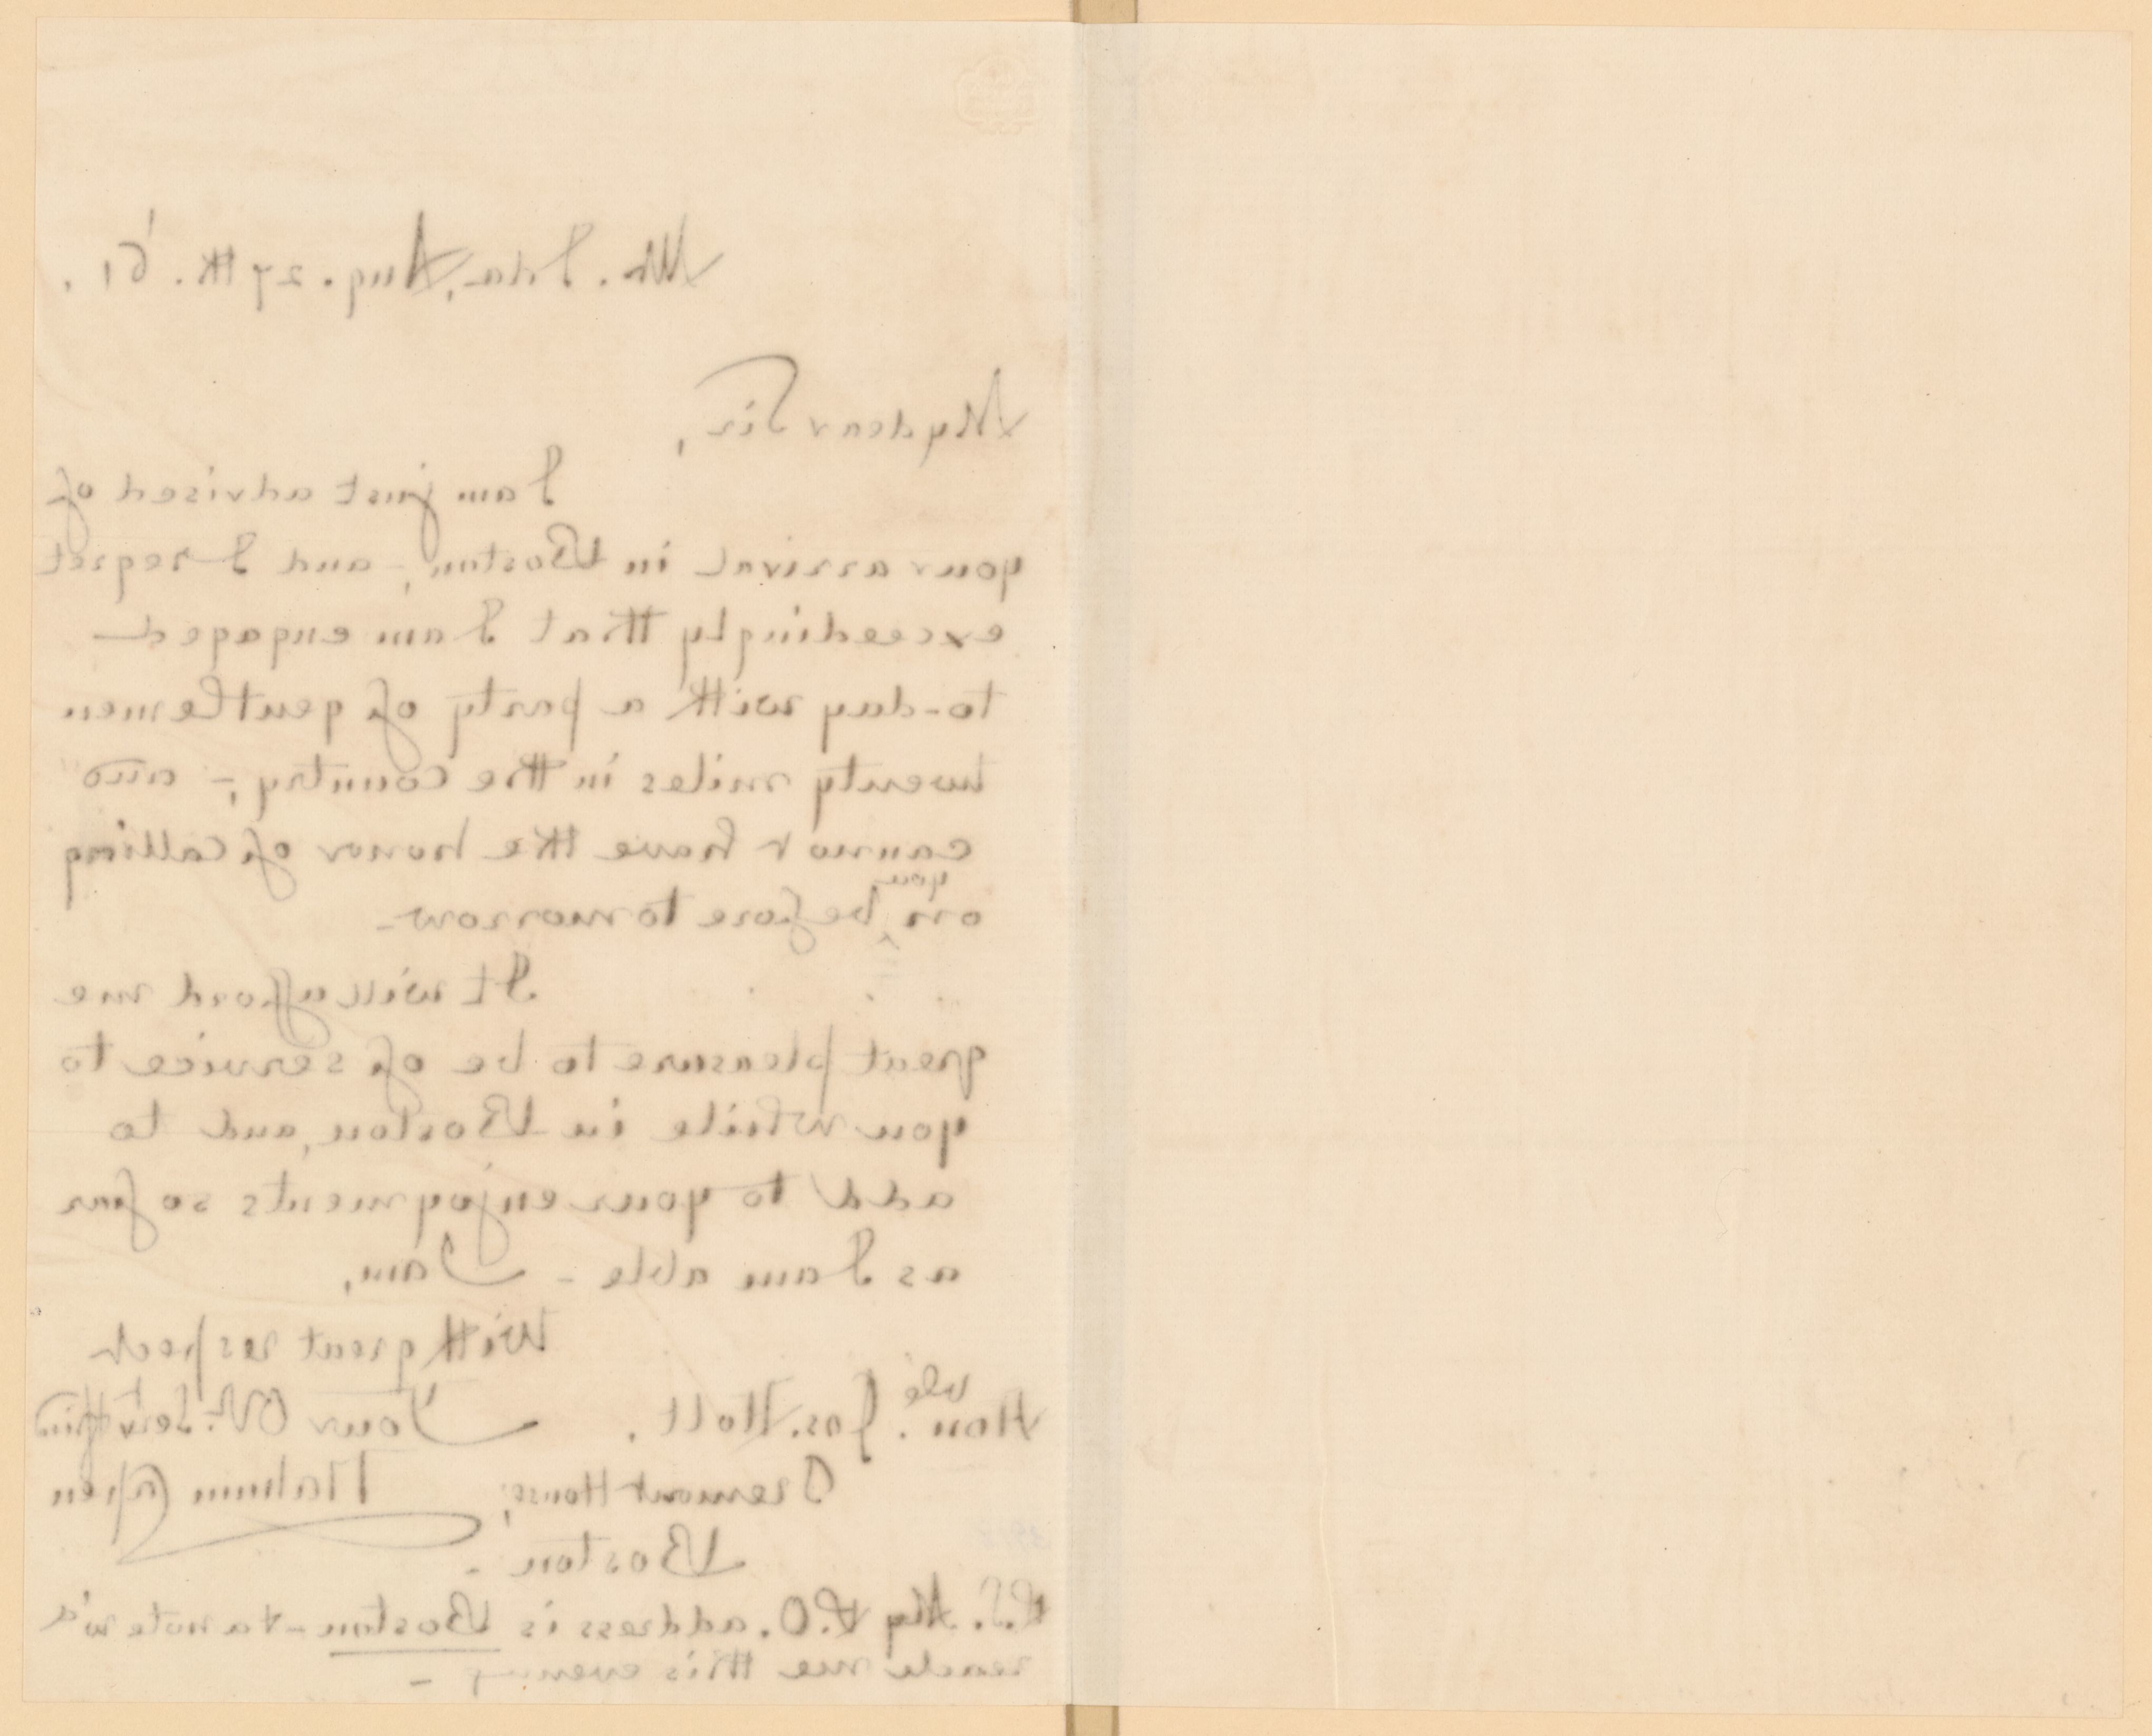 Mt. Ida, Aug. 27th. '61.
My dear Sir,
I am just advised of
your arrival in Boston,- and I regret
exceedingly that I am engaged
to-day with a party of gentlemen
twenty miles in the country,- and
cannot have the honor of calling
on you before tomorrow-
It will afford me
great pleasure to be of service to
you while in Boston, and to
add to your enjoyments so far
as I am able - I am,
With great respect
Honble. Jos. Holt. Your Obt. Servt
Tremont House, Nahum Capen
Boston-
P.S. My P.O. address is Boston - & a note w'd
reach me this evening -